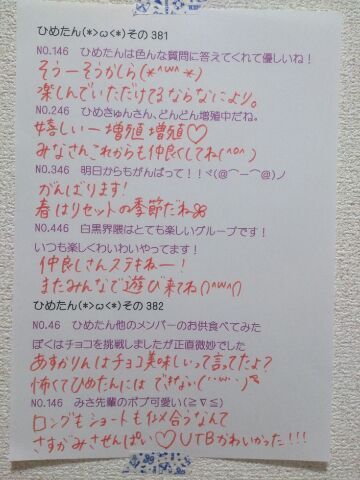 ひめたん(*>ω<*)その381
NO.146 ひめたんは色んな質問に答えてくれて優しいね!
そうーそうかしら(*^w^*)
楽しんでいただけてるならなにより。
NO.246 ひめきゅんさん、どんどん増殖中だね。
嬉しいー増殖増殖♡
みなさんこれからも仲良くしてね(^o^)
NO.346 明日からもがんばって!!ヾ(@⌒ー⌒@)ノ
がんばります!
春はリセットの季節だね
NO.446 白黒界隈はとても楽しいグループです!
いつも楽しくわいわいやってます!
仲良しさんステキねー!
またみんなで遊び来てね()^w^()
ひめたん(*>ω<*)その382
NO.46 ひめたん他のメンバーのお供食べてみた
ぼくはチョコを挑戦しましたが正直微妙でした
あすかりんはチョコ美味しいって言ってたよ?
怖くてひめたんには できない(´・w・`)
NO.146 みさ先輩のボブ可愛い(≧∇≦)
ロングもショートも似合うなんて
さすがみさせんぱい♡UTBかわいかった!!!